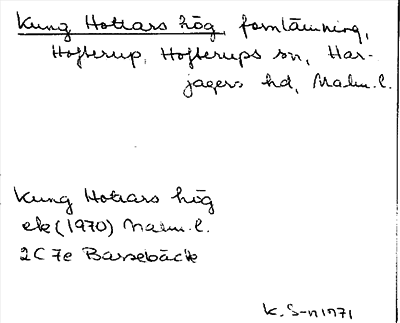 Kung Hottars hög, fornlämning,
Hofterup, Hofterups sn, Har-
jagers hd, Malm.l.
Kung Hottars hög
ek (1970) Malm.l.
2C 7e Barsebäck
K. S-n 1971